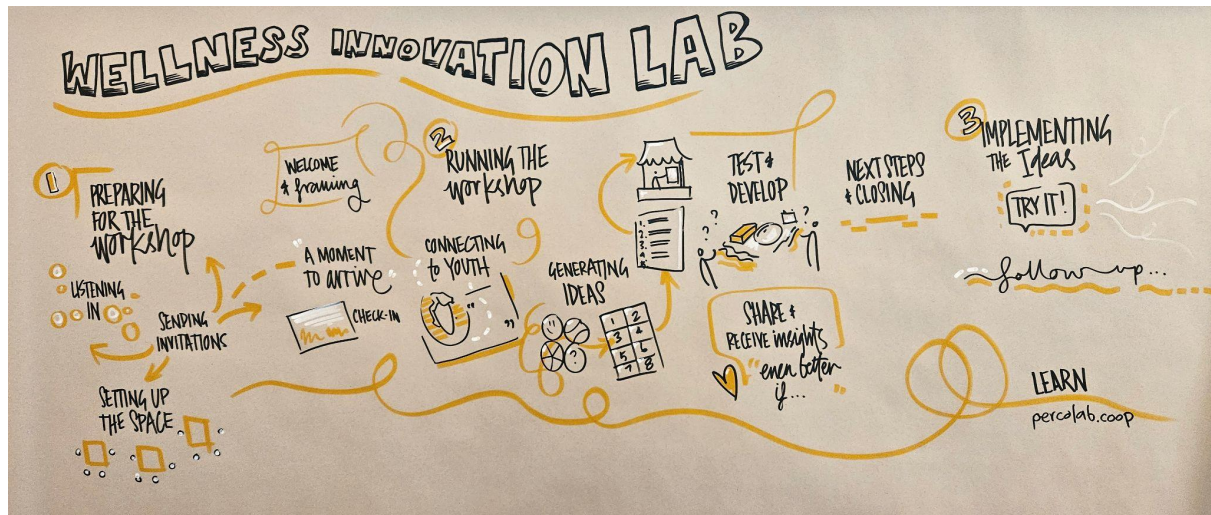 WELLNESS INNOVATION LAB
1
PREPARING
FOR THE
workshop
LISTENING
IN
SENDING
INVITATIONS
SETTING UP
THE SPACE
WELCOME
& framing
A MOMENT
TO arrive
CHECK-IN
2
RUNNING THE
workshop
CONNECTING
to YOUTH
GENERATING
IDEAS
?
1 2
3 4
5 6
7 8
1.
2.
3.
4.
5.
TEST &
DEVELOP
? ?
? ?
SHARE &
RECEIVE insights
"even better
if... "
NEXT STEPS
& CLOSING
3
IMPLEMENTING
THE Ideas
TRY IT!
follow up...
LEARN
percolab.coop